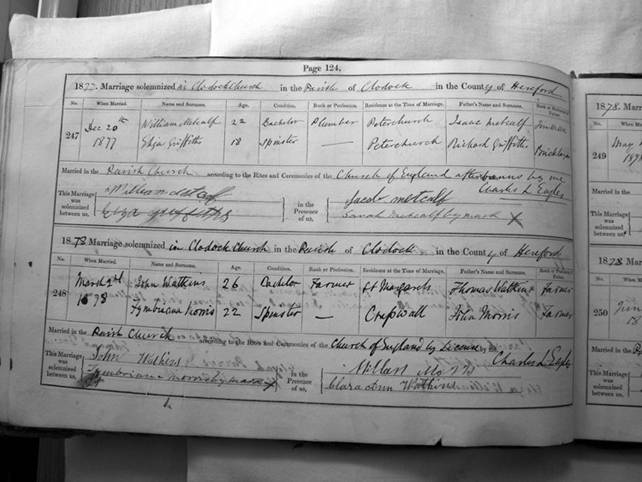 Page 124.
1877. Marriage solemnized in Clodock Church in the Parish of Clodock in the County of Hereford
No. When Married. Name and Surname. Age. Condition. Rank or Profession. Residence at the Time of Marriage. Father's Name and Surname. Rank or Profession of Father.
247 Dec 20th 1877 William Metcalf 22 Bachelor Plumber Peterchurch Isaac Metcalf
Eliza Griffiths 18 Spinster — Peterchurch Richard Griffiths
Married in the Parish Church according to the Rites and Ceremonies of the Church of England after banns by me,
This Marriage was solemnized between us, William Metcalf in the Presence of us, Jacob Metcalf Charles L Eagles
Eliza Griffiths Sarah Metcalf by mark X
1878. Marriage solemnized in Clodock Church in the Parish of Clodock in the County of Hereford
No. When Married. Name and Surname. Age. Condition. Rank or Profession. Residence at the Time of Marriage. Father's Name and Surname. Rank or Profession of Father.
248 March 2nd 1878 John Watkins 26 Bachelor Farmer St Margarets Thomas Watkins Farmer
Morris 22 Spinster — John Morris Farmer
Married in the Parish Church according to the Rites and Ceremonies of the Church of England by License by me,
This Marriage was solemnized between us, John Watkins in the Presence of us, Charles L Eagles
Morris by mark X Clara Ann Watkins
1878.
No.
249
Married in the
This Marriage was solemnized between us,
1878
No.
250
Married in the
This Marriage was solemnized between us,